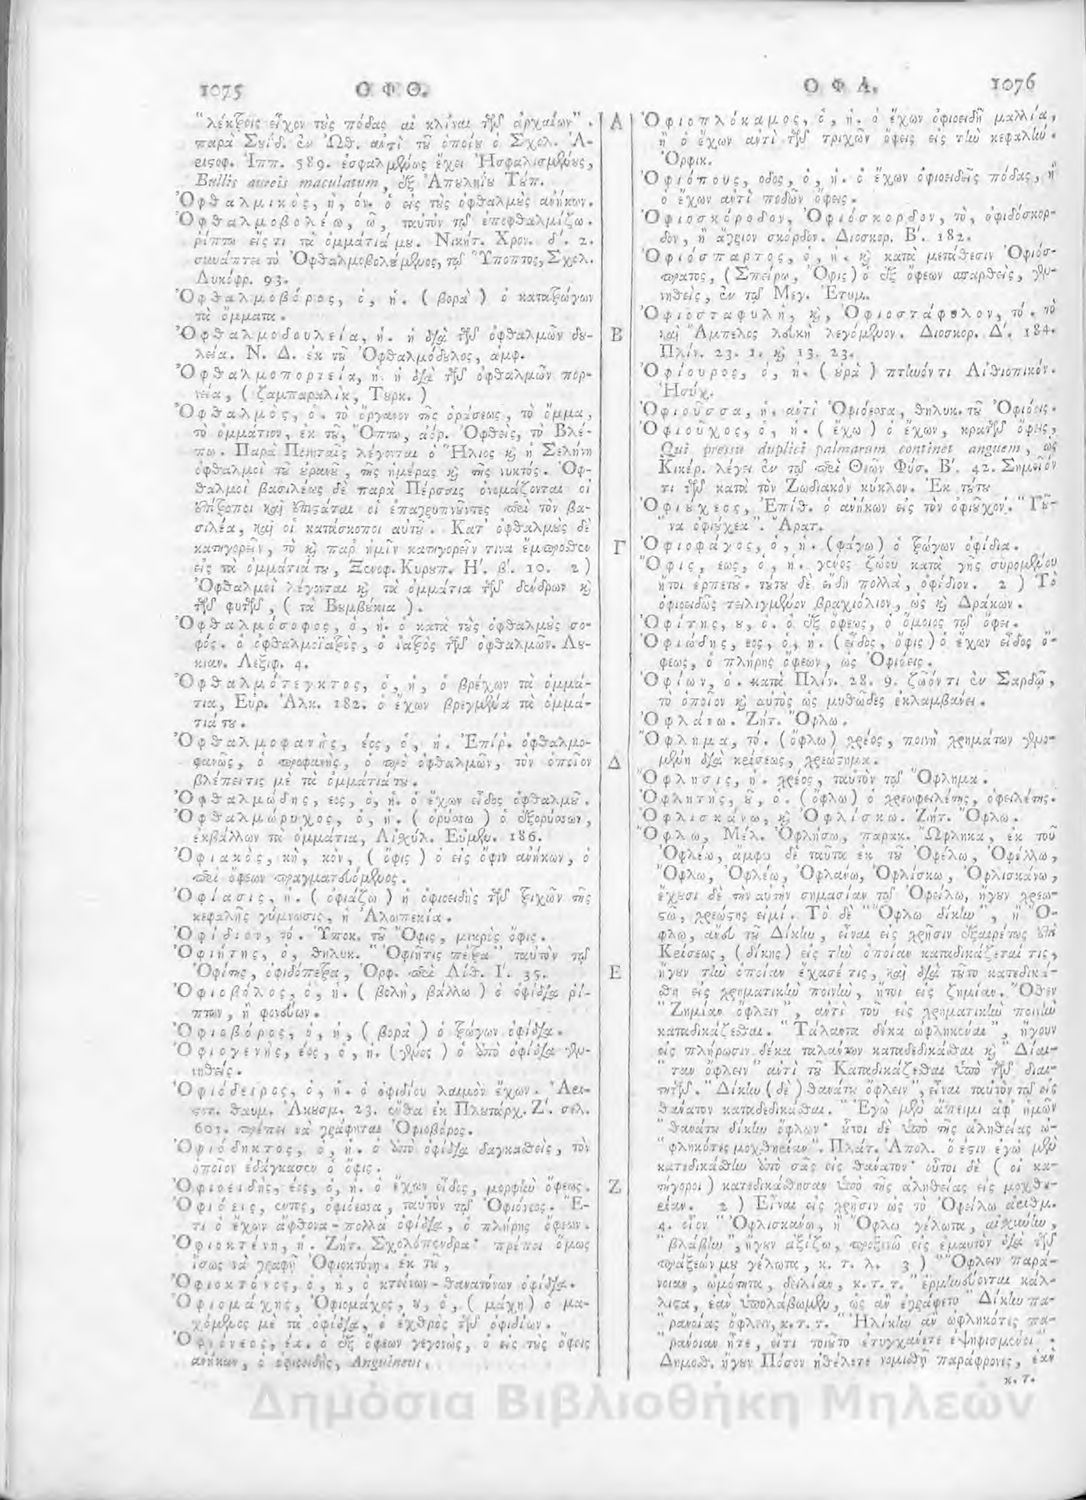 1075 ΟΦΘ.
"λέκτροις εἶχον τοὺς πόδας αἱ κλίναι τῶν ἀρχαίων".
παρὰ Σουΐδ. ἐν Ὠθ. ἀντὶ τοῦ ὁποίου ὁ Σχολ. Ἀ-
ριστοφ. Ἱππ. 589. ἐσφαλμένως ἔχει Ἠσφαλισμένους,
Bullis aureis maculatum, ἐξ Ἀπυληΐου Τύπ.
Ὀφθαλμικὸς, ἡ, όν. ὁ εἰς τοὺς ὀφθαλμοὺς ἀνήκων.
Ὀφθαλμοβολέω, ῶ, ταυτὸν τῷ ἐποφθαλμίζω.
ῥίπτω εἴς τι τὰ ὀμμάτιά μου. Νικήτ. Χρον. δ'. 2.
συνάπτει τὸ Ὀφθαλμοβολούμενος, τῷ Ὕποπτος, Σχολ.
Λυκόφρ. 93.
Ὀφθαλμοβόρος, ὁ, ἡ. (βορὰ) ὁ κατατρώγων
τὰ ὄμματα.
Ὀφθαλμοδουλεία, ἡ. ἡ διὰ τῶν ὀφθαλμῶν δου-
λεία. Ν. Δ. ἐκ τοῦ Ὀφθαλμόδουλος, ἀμφ.
Ὀφθαλμοπορνεία, ἡ. ἡ διὰ τῶν ὀφθαλμῶν πορ-
νεία, (ζαμπαραλίκ, Τουρκ.)
Ὀφθαλμὸς, ὁ. τὸ ὄργανον τῆς ὁράσεως, τὸ ὄμμα,
τὸ ὀμμάτιον, ἐκ τοῦ, Ὄπτω, ἀόρ. Ὀφθεὶς, τὸ Βλέ-
πω. Παρὰ Ποιηταῖς λέγονται ὁ Ἥλιος καὶ ἡ Σελήνη
ὀφθαλμοὶ τοῦ οὐρανοῦ, τῆς ἡμέρας καὶ τῆς νυκτός. Ὀφ-
θαλμοὶ βασιλέως δὲ παρὰ Πέρσαις ὀνομάζονται οἱ
ἐπίτροποι καὶ ἐπιστάται οἱ ἐπαγρυπνοῦντες περὶ τὸν βα-
σιλέα, καὶ οἱ κατάσκοποι αὐτοῦ. Κατ' ὀφθαλμοὺς δὲ
κατηγορεῖν, τὸ καὶ παρ' ἡμῖν κατηγορεῖν τινα ἔμπροσθεν
εἰς τὰ ὀμμάτιά του, Ξενοφ. Κυρουπ. Η'. β'. 10. 2)
Ὀφθαλμοὶ λέγονται καὶ τὰ ὀμμάτια τῶν δένδρων καὶ
τῶν φυτῶν, (τὰ Βουμβούκια).
Ὀφθαλμόσοφος, ὁ, ἡ. ὁ κατὰ τοὺς ὀφθαλμοὺς σο-
φός. ὁ ὀφθαλμοϊατρὸς, ὁ ἰατρὸς τῶν ὀφθαλμῶν. Λου-
κιαν. Λεξιφ. 4.
Ὀφθαλμότεγκτος, ὁ, ἡ, ὁ βρέχων τὰ ὀμμά-
τια, Εὐρ. Ἀλκ. 182. ὁ ἔχων βρεγμένα τὰ ὀμμά-
τιά του.
Ὀφθαλμοφανὴς, έος, ὁ, ἡ. Ἐπίῤ. ὀφθαλμο-
φανῶς, ὁ προφανὴς, ὁ πρὸ ὀφθαλμῶν, τὸν ὁποῖον
βλέπει τις μὲ τὰ ὀμμάτιά του.
Ὀφθαλμώδης, εος, ὁ, ἡ. ὁ ἔχων εἶδος ὀφθαλμοῦ.
Ὀφθαλμώρυχος, ὁ, ἡ. (ὀρύσσω) ὁ ἐξορύσσων,
ἐκβάλλων τὰ ὀμμάτια, Αἰσχύλ. Εὐμεν. 186.
Ὀφιακὸς, κὴ, κὸν, (ὄφις) ὁ εἰς ὄφιν ἀνήκων, ὁ
περὶ ὄφεων πραγματευόμενος.
Ὀφίασις, ἡ. (ὀφιάζω) ἡ ὀφιοειδὴς τῶν τριχῶν τῆς
κεφαλῆς γύμνωσις, ἡ Ἀλωπεκία.
Ὀφίδιον, τό. Ὑποκ. τοῦ Ὄφις, μικρὸς ὄφις.
Ὀφιήτης, ὁ, θηλυκ. "Ὀφιῆτις πέτρα" ταυτὸν τῷ
Ὀφίτης, ὀφιδόπετρα, Ὀρφ. περὶ Λίθ. Γ. 35.
Ὀφιοβόλος, ὁ, ἡ. (βολὴ, βάλλω) ὁ ὀφίδια ῥί-
πτων, ἢ φονεύων.
Ὀφιοβόρος, ὁ, ἡ, (βορὰ) ὁ τρώγων ὀφίδια.
Ὀφιογενὴς, έος, ὁ, ἡ. (γένος) ὁ ἀπὸ ὀφίδια γεν-
νηθείς.
Ὀφιόδειρος, ὁ, ἡ. ὁ ὀφιδίου λαιμὸν ἔχων. Ἀρι-
στοτ. θαυμ. Ἀκουσμ. 23. ἔνθα ἐκ Πλουτάρχ. Ζ'. σελ.
601. πρέπει νὰ γράφηται Ὀφιοβόρος.
Ὀφιόδηκτος, ὁ, ἡ. ὁ ἀπὸ ὀφίδια δαγκαθεὶς, τὸν
ὁποῖον ἐδάγκασεν ὁ ὄφις.
Ὀφιοειδὴς, έος, ὁ, ἡ. ὁ ἔχων εἶδος, μορφὴν ὄφεως.
Ὀφιόεις, εντος, ὀφιόεσσα, ταυτὸν τῷ Ὀφιόνεος. Ἔ-
τι ὁ ἔχων ἄφθονα - πολλὰ ὀφίδια, ὁ πλήρης ὄφεων.
Ὀφιοκτένη, ἡ. Ζήτ. Σχολόπενδρα· πρέπει ὅμως
ἴσως νὰ γραφῇ Ὀφιοκτόνη. ἐκ τοῦ,
Ὀφιοκτόνος, ὁ, ἡ, ὁ κτείνων - θανατόνων ὀφίδια.
Ὀφιομάχης, Ὀφιομάχος, ου, ὁ, (μάχη) ὁ μα-
χόμενος μὲ τὰ ὀφίδια, ὁ ἐχθρὸς τῶν ὀφιδίων.
Ὀφιόνεος, έα. ὁ ἐξ ὄφεων γεγονὼς, ὁ εἰς τοὺς ὄφεις
ἀνήκων, ὁ ὀφιοειδὴς, Anguineus.
Α
Β
Γ
Δ
Ε
Ζ
ΟΦΛ. 1076
Ὀφιοπλόκαμος, ὁ, ἡ. ὁ ἔχων ὀφιοειδῆ μαλλία,
ἢ ὁ ἔχων ἀντὶ τῶν τριχῶν ὄφεις εἰς τὴν κεφαλήν.
Ὀρφικ.
Ὀφιόπους, οδος, ὁ, ἡ. ὁ ἔχων ὀφιοειδεῖς πόδας, ἢ
ὁ ἔχων ἀντὶ ποδῶν ὄφεις.
Ὀφιοσκόροδον, Ὀφιόσκορδον, τὸ, ὀφιδόσκορ-
δον, ἢ ἄγριον σκόρδον. Διοσκορ. Β'. 182.
Ὀφιόσπαρτος, ὁ, ἡ. καὶ κατὰ μετάθεσιν Ὀφιόσ-
πρατος, (Σπείρω, Ὄφις) ὁ ἐξ ὄφεων σπαρθεὶς, γεν-
νηθεὶς, ἐν τῷ Μεγ. Ἐτυμ.
Ὀφιοσταφυλὴ, καὶ, Ὀφιοστάφυλον, τό. τὸ
καὶ Ἄμπελος λευκὴ λεγόμενον. Διοσκορ. Δ'. 184.
Πλίν. 23. 1. καὶ 13. 23.
Ὀφίουρος, ὁ, ἡ. (οὐρὰ) πτηνόν τι Αἰθιοπικόν.
Ἡσύχ.
Ὀφιοῦσσα, ἡ. ἀντὶ Ὀφιόεσσα, θηλυκ. τοῦ Ὀφιόεις.
Ὀφιοῦχος, ὁ, ἡ. (ἔχω) ὁ ἔχων, κρατῶν ὄφεις,
Qui pressu duplici palmarum continet anguem, ὡς
Κικέρ. λέγει ἐν τῷ περὶ Θεῶν Φύσ. Β'. 42. Σημεῖόν
τι τῶν κατὰ τὸν Ζωδιακὸν κύκλον. Ἐκ τούτου
Ὀφιούχεος, Ἐπίθ. ὁ ἀνήκων εἰς τὸν ὀφιοῦχον. "Γοῦ-
"να ὀφιούχεα". Ἀρατ.
Ὀφιοφάγος, ὁ, ἡ. (φάγω) ὁ τρώγων ὀφίδια.
Ὄφις, εως, ὁ, ἡ. γένος ζώου κατὰ γῆς συρομένου
ἤτοι ἑρπετοῦ. τούτου δὲ εἴδη πολλὰ, ὀφίδιον. 2) Τὸ
ὀφιοειδῶς τυλιγμένον βραχιόλιον, ὡς καὶ Δράκων.
Ὀφίτης, ου, ὁ. ὁ ἐξ ὄφεως, ὁ ὅμοιος τῷ ὄφει.
Ὀφιώδης, εος, ὁ, ἡ. (εἶδος, ὄφις) ὁ ἔχων εἶδος ὄ-
φεως, ὁ πλήρης ὄφεων, ὡς Ὀφιόεις.
Ὀφίων, ὁ. κατὰ Πλίν. 28. 9. ζῶόν τι ἐν Σαρδῷ,
τὸ ὁποῖον καὶ αὐτὸς ὡς μυθῶδες ἐκλαμβάνει.
Ὀφλάνω. Ζήτ. Ὄφλω.
Ὄφλημα, τό. (ὄφλω) χρέος, ποινὴ χρημάτων γενο-
μένη διὰ κρίσεως, χρεώστημα.
Ὄφλησις, ἡ. χρέος, ταυτὸν τῷ Ὄφλημα.
Ὀφλητὴς, οῦ, ὁ. (ὄφλω) ὁ χρεωφειλέτης, ὀφειλέτης.
Ὀφλισκάνω, καὶ Ὀφλίσκω. Ζήτ. Ὄφλω.
Ὄφλω, Μέλ. Ὀφλήσω, παρακ. Ὤφληκα, ἐκ τοῦ
Ὀφλέω, ἄμφω δὲ ταῦτα ἐκ τοῦ Ὀφέλω, Ὀφέλλω,
Ὄφλω, Ὀφλέω, Ὀφλάνω, Ὀφλίσκω, Ὀφλισκάνω,
ἔχουσι δὲ τὴν αὐτὴν σημασίαν τῷ Ὀφείλω, ἤγουν χρεω-
στῶ, χρεώστης εἰμί. Τὸ δὲ "Ὄφλω δίκην", ἢ Ὄ-
φλω, ἄνευ τοῦ Δίκην, εἶναι εἰς χρῆσιν ἐξαιρέτως ἐπὶ
Κρίσεως, (δίκης) εἰς τὴν ὁποίαν καταδικάζεταί τις,
ἤγουν τὴν ὁποίαν ἔχασέ τις, καὶ διὰ τοῦτο κατεδικά-
σθη εἰς χρηματικὴν ποινὴν, ἤτοι εἰς ζημίαν. Ὅθεν
"Ζημίαν ὀφλεῖν", ἀντὶ τοῦ εἰς χρηματικὴν ποινὴν
καταδικάζεσθαι. "Τάλαντα δέκα ὠφληκέναι", ἤγουν
εἰς πλήρωσιν δέκα ταλάντων καταδεδικάσθαι καὶ "Δίαι-
"ταν ὀφλεῖν" ἀντὶ τοῦ Καταδικάζεσθαι ὑπὸ τῶν διαι-
τητῶν. "Δίκην (δὲ) θανάτου ὀφλεῖν", εἶναι ταυτὸν τῷ εἰς
θάνατον καταδεδικάσθαι. "Ἐγὼ μὲν ἄπειμι ἀφ' ἡμῶν
"θανάτου δίκην ὀφλών· οὗτοι δὲ ὑπὸ τῆς ἀληθείας ὠ-
"φληκότες μοχθηρίαν". Πλάτ. Ἀπολ. ὅ ἐστιν ἐγὼ μὲν
κατεδικάσθην ὑπὸ σᾶς εἰς θάνατον· οὗτοι δὲ (οἱ κα-
τήγοροι) κατεδικάσθησαν ὑπὸ τῆς ἀληθείας εἰς μοχθη-
ρίαν. 2) Εἶναι εἰς χρῆσιν ὡς τὸ Ὀφείλω ἀριθμ.
4. οἷον "Ὀφλισκάνω, ἢ Ὄφλω γέλωτα, αἰσχύνην,
"βλάβην", ἤγουν ἀξίζω, προξενῶ εἰς ἐμαυτὸν διὰ τῶν
πράξεών μου γέλωτα, κ. τ. λ. 3) "Ὄφλειν παρά-
νοιαν, ὠμότητα, δειλίαν, κ. τ. τ." ἑρμηνεύονται κάλ-
λιστα, ἐὰν ὑπολάβωμεν, ὡς ἂν ἐγράφετο "Δίκην πα-
"ρανοίας ὄφλειν, κ. τ. τ. "Ἡλίκην ἂν ὠφληκότες πα-
"ράνοιαν ἦτε, εἴτι τοιοῦτο ἐτυγχάνετε ἐψηφισμένοι".
Δημοσθ. ἤγουν Πόσον ἠθέλετε νομισθῇ παράφρονες, ἐὰν
κ. τ.
Δημόσια Βιβλιοθήκη Μηλεών